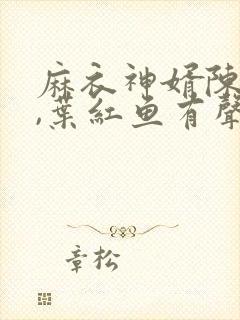 麻衣神婿陳
,葉紅魚有聲
章松